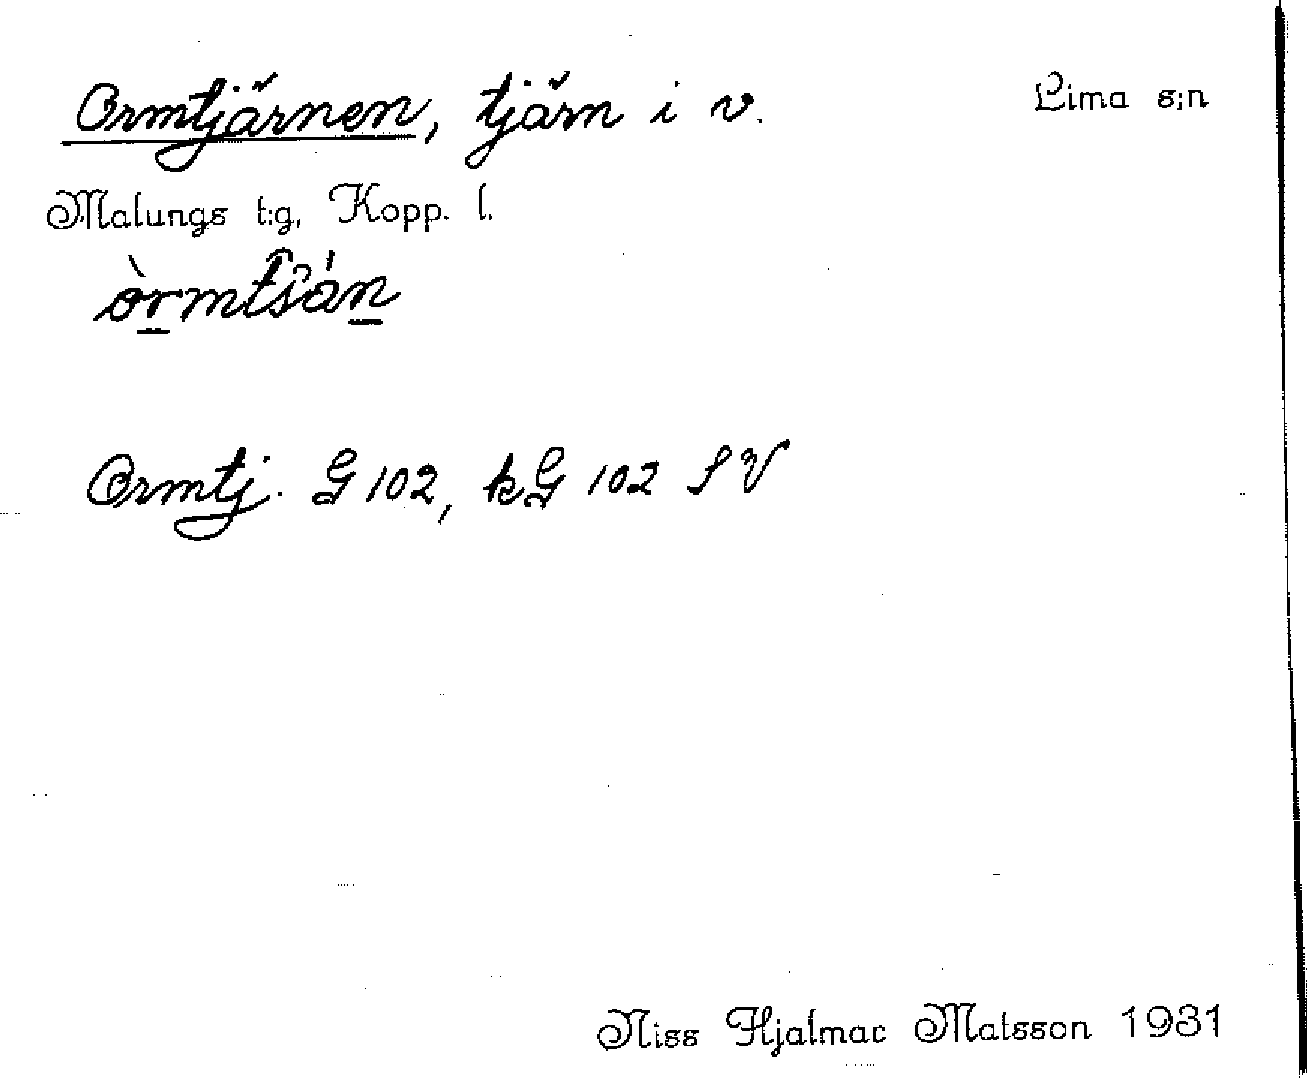 Ormtjärnen, tjärn i v. Lima s:n
Malungs t:g, Kopp. l.
Ormtj. G 102, kG 102 SV
Niss Hjalmar Matsson 1931